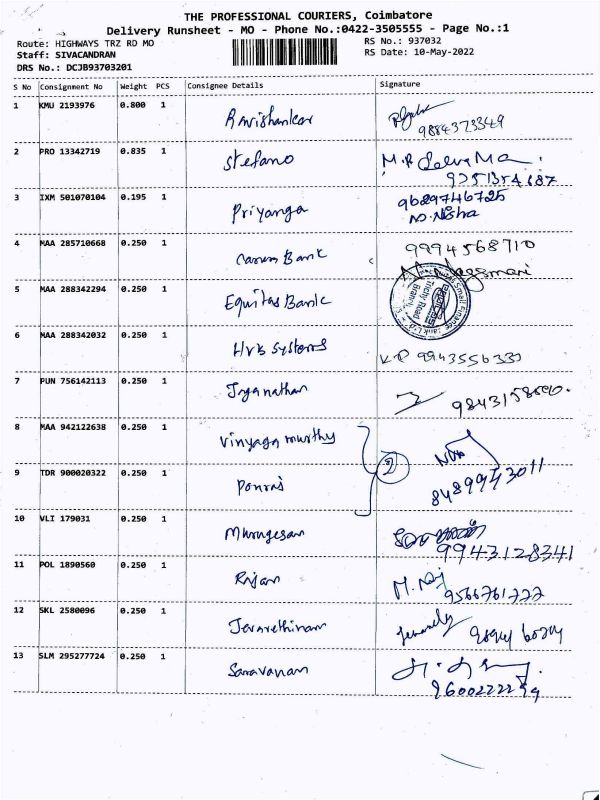 THE PROFESSIONAL COURIERS, Coimbatore
Delivery Runsheet - MO - Phone No.:0422-3505555 - Page No.:1
Route: HIGHWAYS TRZ RD MO RS No.: 937032
Staff: SIVACANDRAN RS Date: 10-May-2022
DRS No.: DCJB93703201
S No Consignment No Weight PCS Consignee Details Signature
1 KMU 2193976 0.800 1 Ravishankar
9884373349
2 PRO 13342719 0.835 1 Stefano
9751354687
3 IXM 501070104 0.195 1 Priyanga 9629746725
N.Nisha
4 MAA 285710668 0.250 1 Canara Bank 9994568710
5 MAA 288342294 0.250 1 Equitas Bank
Small Finance
Trichy Road
Branch
6 MAA 288342032 0.250 1 Hvb systems K.P 9943556333
7 PUN 756142113 0.250 1 Jaganathan
8 MAA 942122638 0.250 1 Vinyaga murthy
9 TDR 900020322 0.250 1 Ponraj 2 8489943011
10 VLI 179031 0.250 1 Murugesan
99431 28341
11 POL 1890560 0.250 1 Rajan M. Raj
9566761777
12 SKL 2580096 0.250 1
13 SLM 295277724 0.250 1 Saravanan